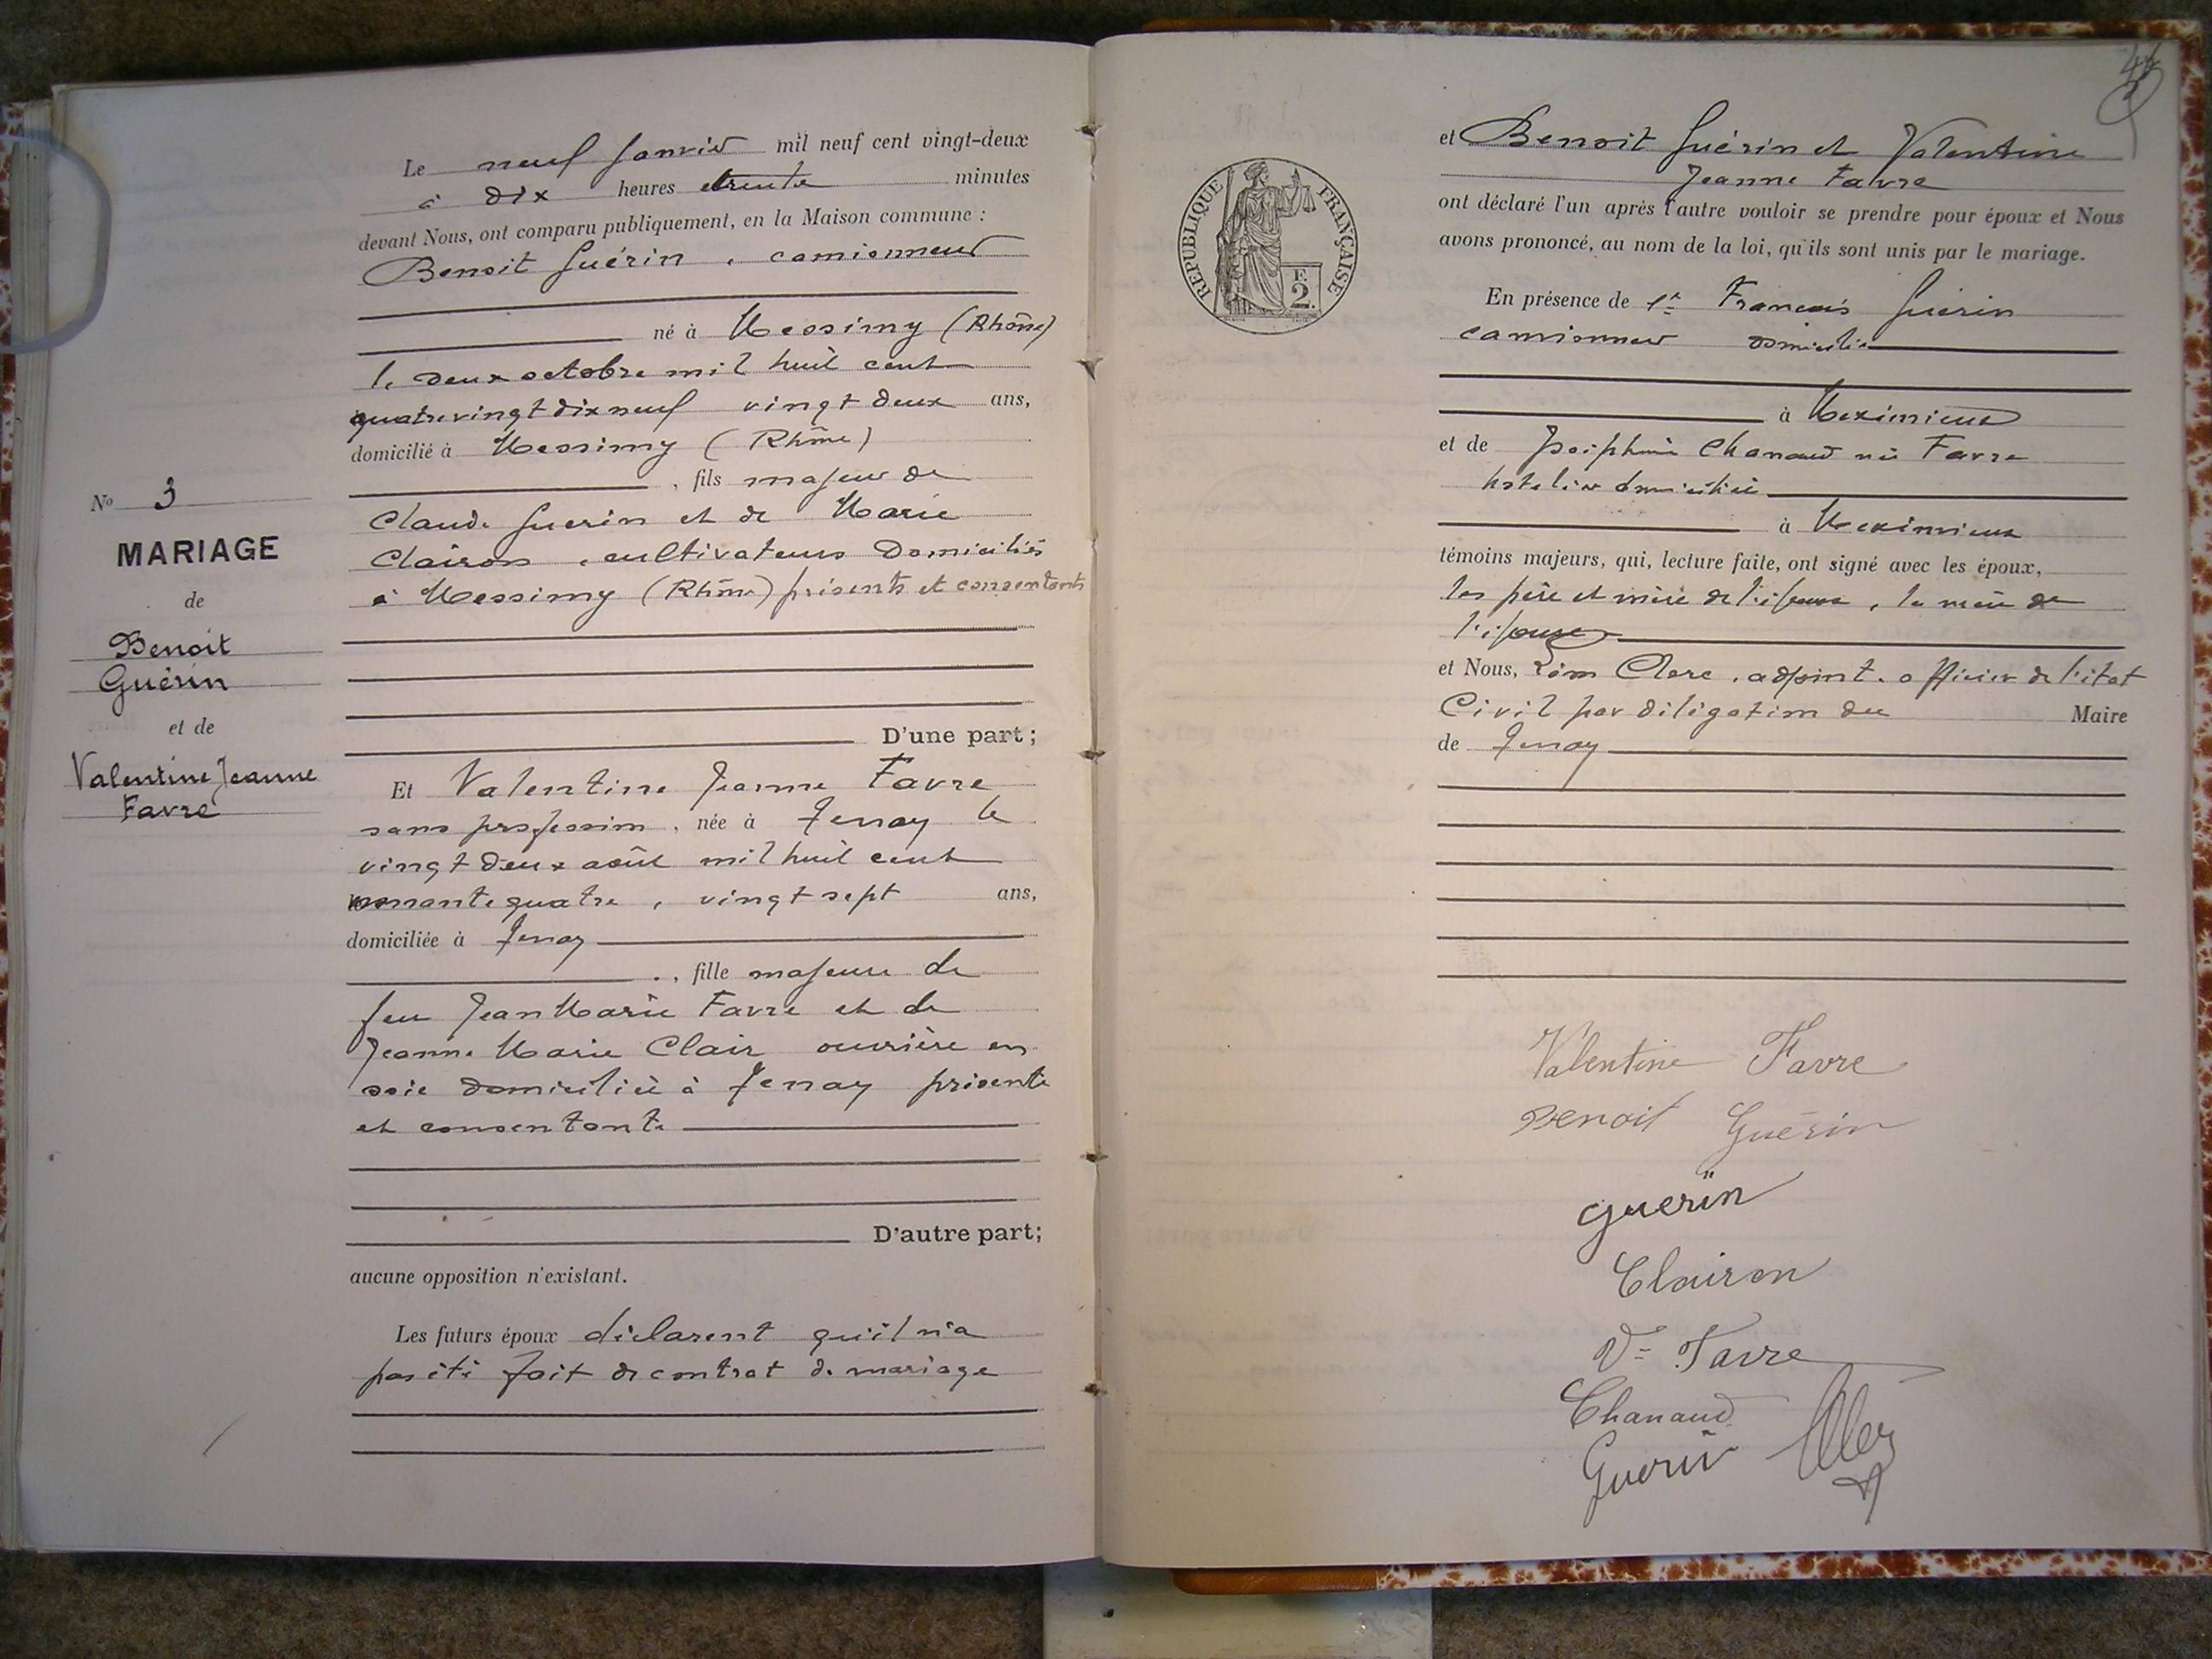 Le neuf Janvier mil neuf cent vingt-deux
à dix heures et trente minutes
devant Nous, ont comparu publiquement, en la Maison commune :
Benoit Guérin, camionneur
né à Messimy (Rhône)
le deux octobre mil huit cent
quatrevingt dix neuf vingt deux ans,
domicilié à Messimy (Rhône)
, fils majeur de
Claude Guerin et de Marie
Clairon, cultivateurs domiciliés
à Messimy (Rhône) présents et consentants
D'une part ;
No 3
MARIAGE
de
Benoit
Guérin
et de
Valentine Jeanne
Favre
Et Valentine Jeanne Favre
sans profession, née à Tenay le
vingt deux août mil huit cent
nonante quatre, vingt sept ans,
domiciliée à Tenay
, fille majeure de
feu Jean Marie Favre et de
Jeanne Marie Clair ouvrière en
soie domiciliée à Tenay présente
et consentante
D'autre part;
aucune opposition n'existant.
Les futurs époux déclarent qu'il n'a
pas été fait de contrat de mariage
et Benoit Guérin et Valentine
Jeanne Favre
ont déclaré l'un après l'autre vouloir se prendre pour époux et Nous
avons prononcé, au nom de la loi, qu'ils sont unis par le mariage.
RÉPUBLIQUE FRANÇAISE
F.
2.
En présence de François Guérin
camionneur domicilié
à Meximieux
et de Joséphine Chanaud née Favre
hotelier domiciliée
à Meximieux
témoins majeurs, qui, lecture faite, ont signé avec les époux,
les père et mère de l'époux, la mère de
l'épouse
et Nous, Léon Clerc, adjoint, officier de l'état
Civil par délégation du Maire
de Tenay
Valentine Favre
Benoit Guérin
Guerin
Clairon
Ve Favre
Chanaud
Guerin